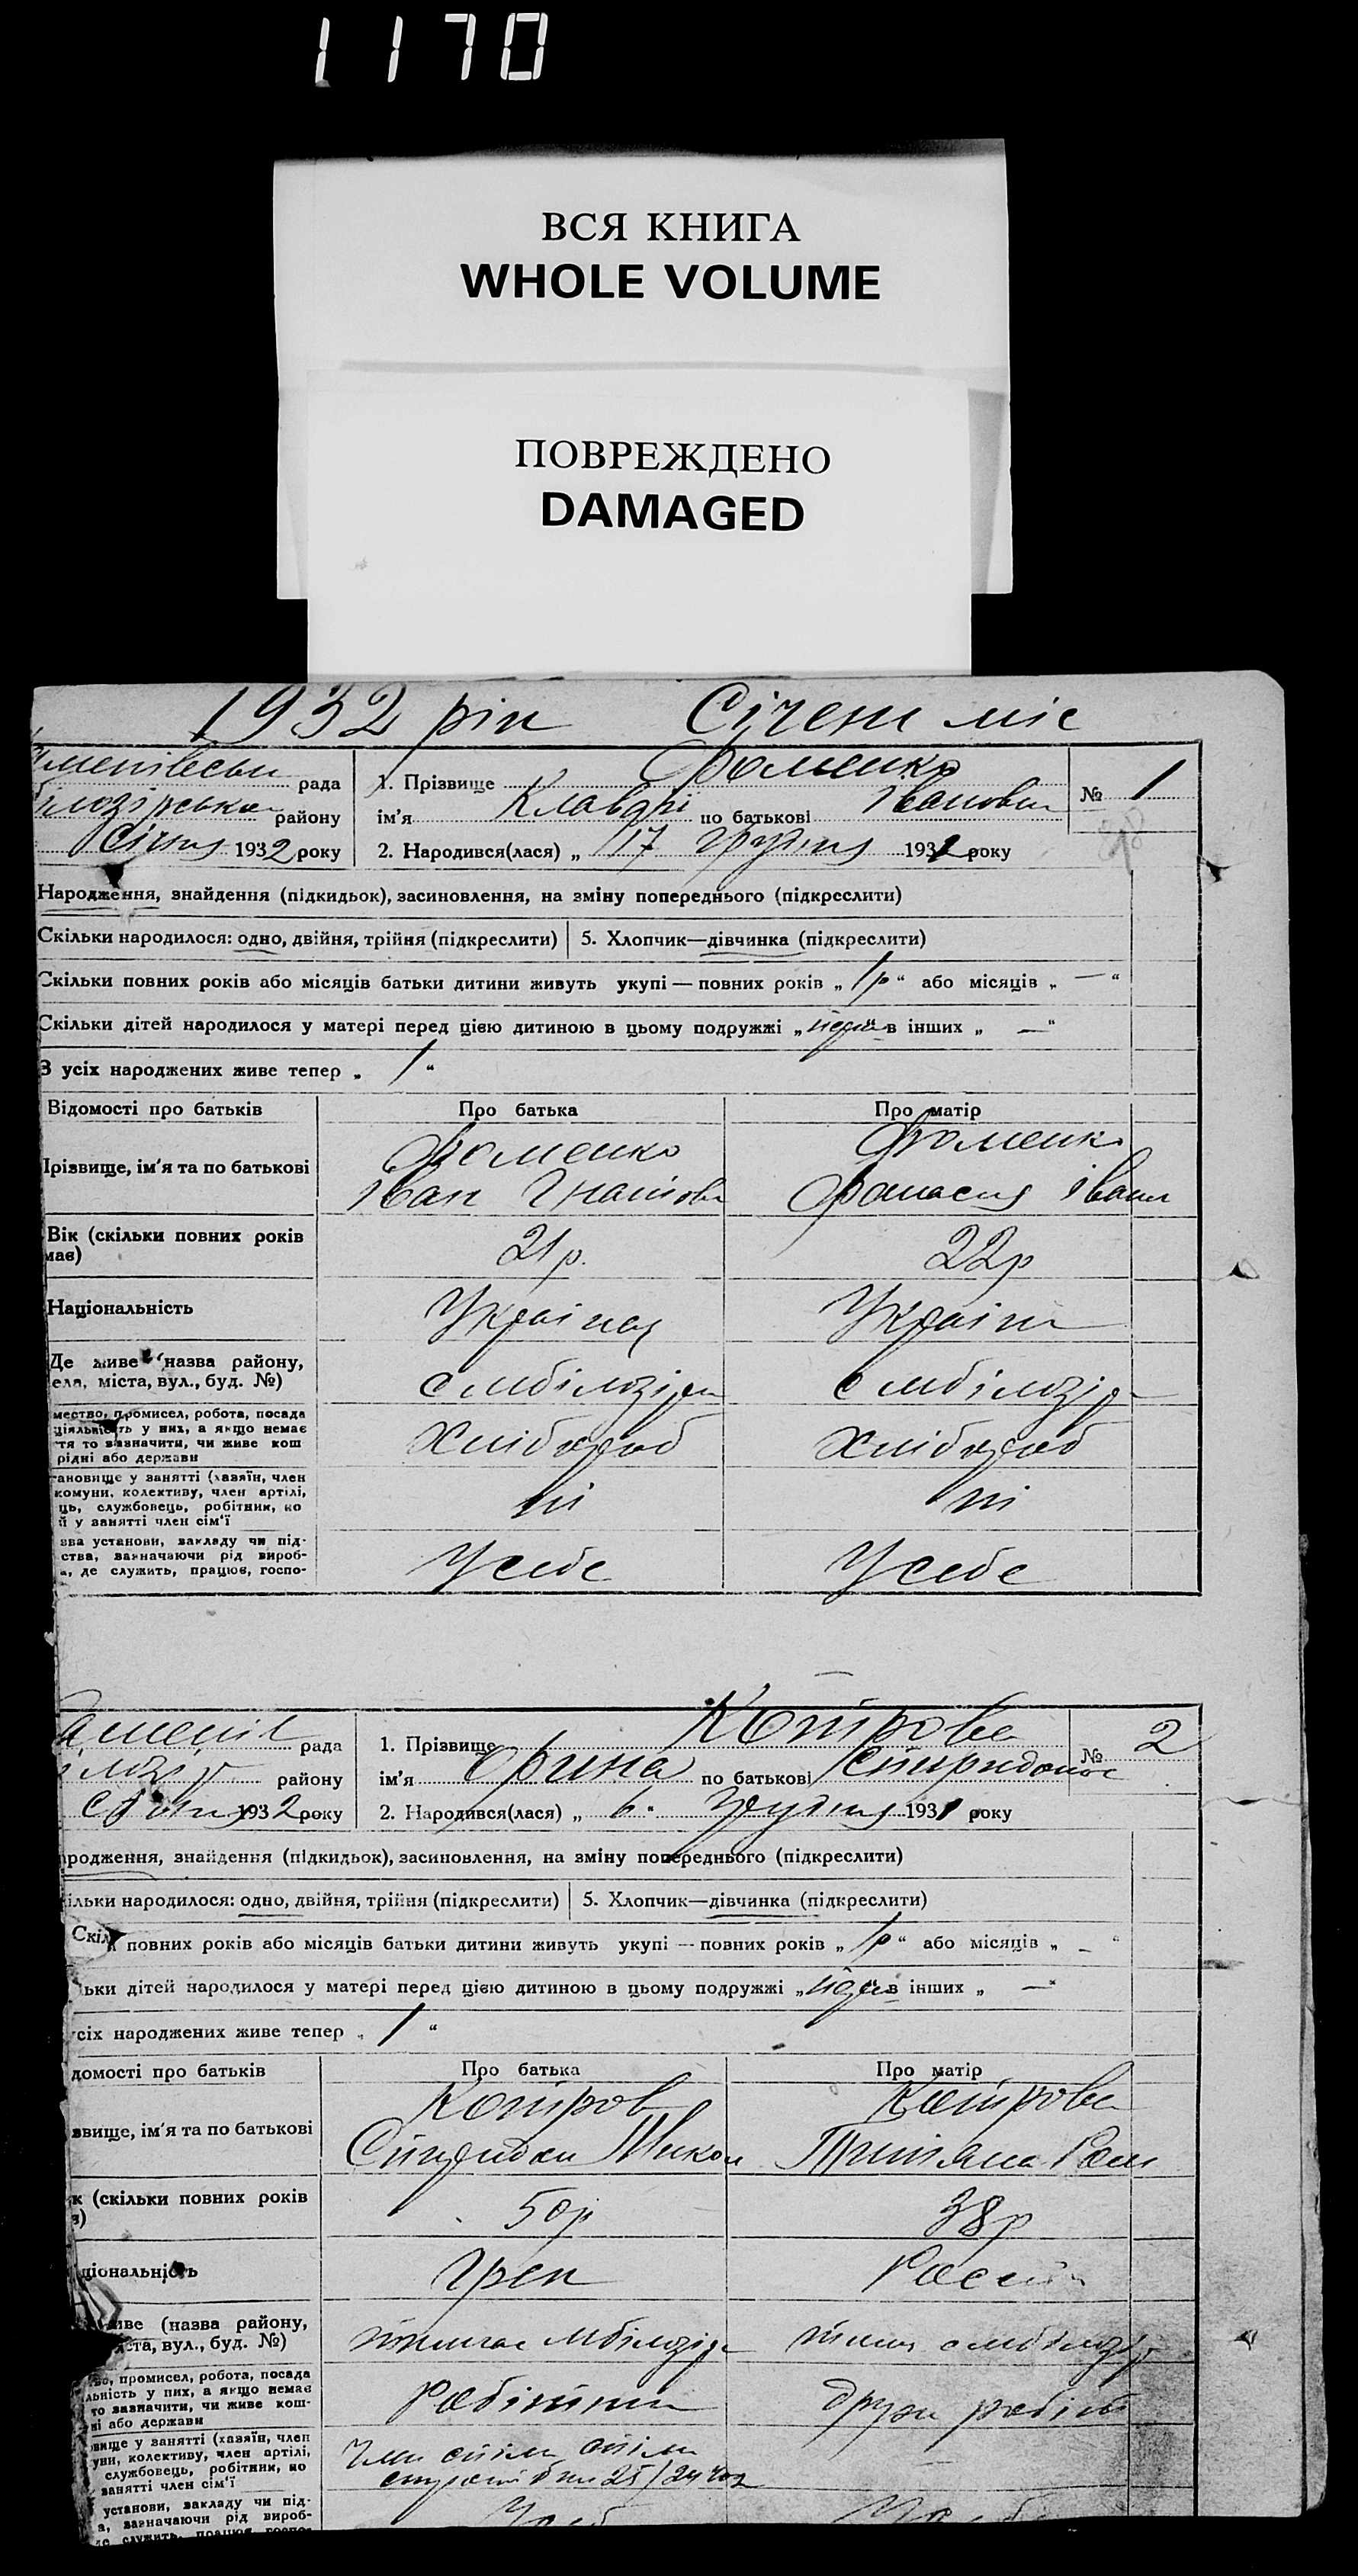 1170
ВСЯ КНИГА
WHOLE VOLUME
ПОВРЕЖДЕНО
DAMAGED
1932 рік Січень міс
рада
1. Прізвище Фоменко
№ 1
району
ім'я Клавді по батькові Івановна
Січня 1932 року
2. Народився(лася) „ 17 грудня 1931 року
Народження, знайдення (підкидьок), засиновлення, на зміну попереднього (підкреслити)
Скільки народилося: одно, двійня, трійня (підкреслити)
5. Хлопчик—дівчинка (підкреслити)
Скільки повних років або місяців батьки дитини живуть укупі — повних років „ 1р “ або місяців „ — “
Скільки дітей народилося у матері перед цією дитиною в цьому подружжі „ в інших „ — “
З усіх народжених живе тепер „ 1 “
Відомості про батьків
Про батька
Про матір
Прізвище, ім'я та по батькові
Фоменко
Іван
Фоменко
Іван
Вік (скільки повних років
має)
21р.
22р
Національність
Україн
Де живе (назва району,
села, міста, вул., буд. №)
с мбілозірк
с мбілозір
мество, промисел, робота, посада
ціяльність у них, а якщо немає
тя то зазначити, чи живе кош
рідні або держави
Хлібороб
Хлібороб
тановище у занятті (хазяїн, член
комуни, колективу, член артілі,
ць, службовець, робітник, по
й у занятті член сім'ї
ні
ні
зва установи, закладу чи під-
ства, зазначаючи рід вироб-
а, де служить, працює, госпо-
У себе
У себе
рада
1. Прізвище
№ 2
району
ім'я Орина по батькові Спиридонов
1932 року
2. Народився(лася) „ 6. грудня 1931 року
родження, знайдення (підкидьок), засиновлення, на зміну попереднього (підкреслити)
ільки народилося: одно, двійня, трійня (підкреслити)
5. Хлопчик—дівчинка (підкреслити)
Скіл повних років або місяців батьки дитини живуть укупі — повних років „ 1р “ або місяців „ — “
льки дітей народилося у матері перед цією дитиною в цьому подружжі „ в інших „ — “
усіх народжених живе тепер „ 1 “
домості про батьків
Про батька
Про матір
звище, ім'я та по батькові
Спиридон Микол
к (скільки повних років
в)
50р
38р
ціональність
Грек
иве (назва району,
іста, вул., буд. №)
мбілозір
о, промисел, робота, посада
льність у них, а якщо немає
то зазначити, чи живе кош-
ні або держави
Робітник
робітн
вище у занятті (хазяїн, член
уни, колективу, член артілі,
службовець, робітник, по
занятті член сім'ї
25/24
установи, закладу чи під-
а, зазначаючи рід вироб-
де служить, працює, госпо-